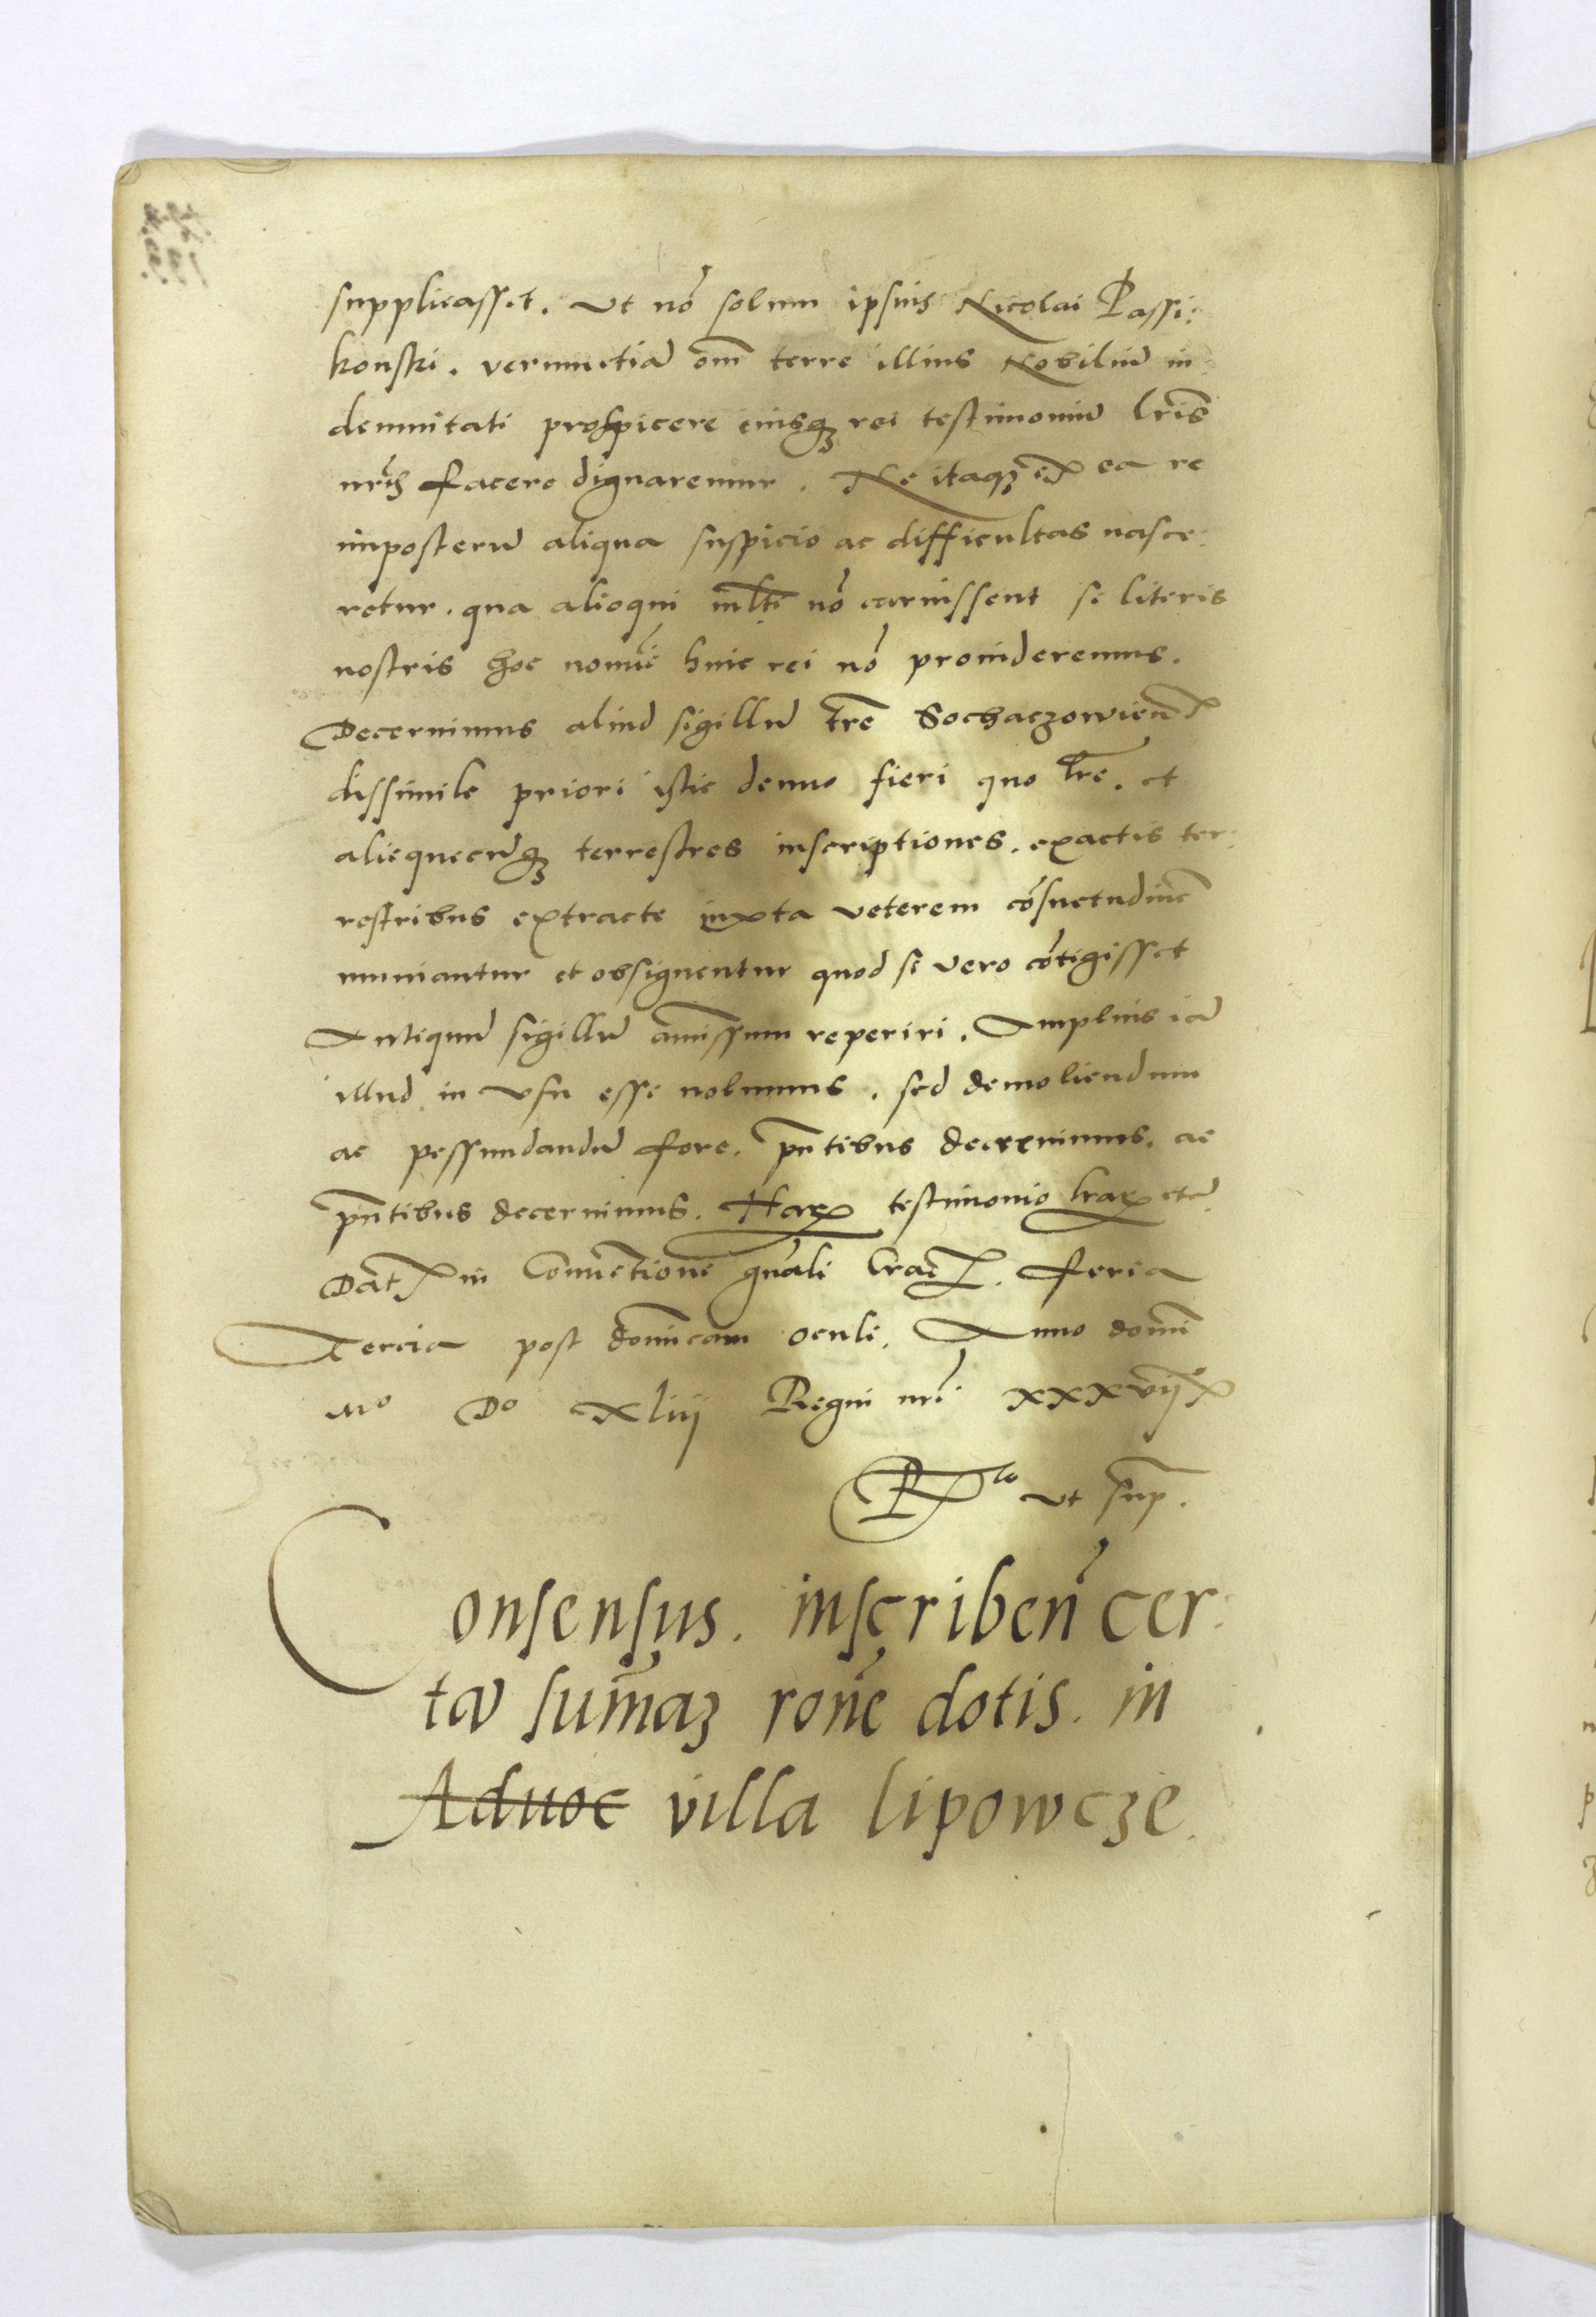 supplicasset. Ut nō solum ipsius Nicolai Passi:
konski. verumetiā om̄ terre illius Nobiliū in
demnitati prospicere eiusqꝫ rei testimoniū lr̄is
nr̄is facere dignaremur. Ne itaqꝫ ex ea re
imposterū aliqua suspicio ac difficultas nasce:
retur. qua alioqui ml̄ti nō caruissent si literis
nostris hoc nomīe huic rei nō prouideremus.
Decernimus aliud sigillū tr̄e Sochaczowień
dissimile priori istic denuo fieri quo lr̄e. et
aliequecūqꝫ terrestres inscriptiones. exactis ter:
restribus extracte iuxta veterem cōsuetudinē
muniantur et obsignentur quod si vero cōtigisset
Antiquū sigillū amissum reperiri. Amplius iā
illud in usu esse nolumus. sed demoliendum
ac pessundandū fore. pn̄tibus decernimus. ac
pn̄tibus decernimus. Harꝝ testimonio lr̄arꝝ etc̄
Dat̄ in Conuētione gn̄ali Crac̄. feria
Tercia post domīcam oculi. Anno domī
Mº Dº xliij Regni nr̄i xxxvijº
Rlo ut sup̄.
Consensus. inscribeń cer:
tā sum̄aꝫ ron̄e dotis. in
Aduoc villa lipowcze.